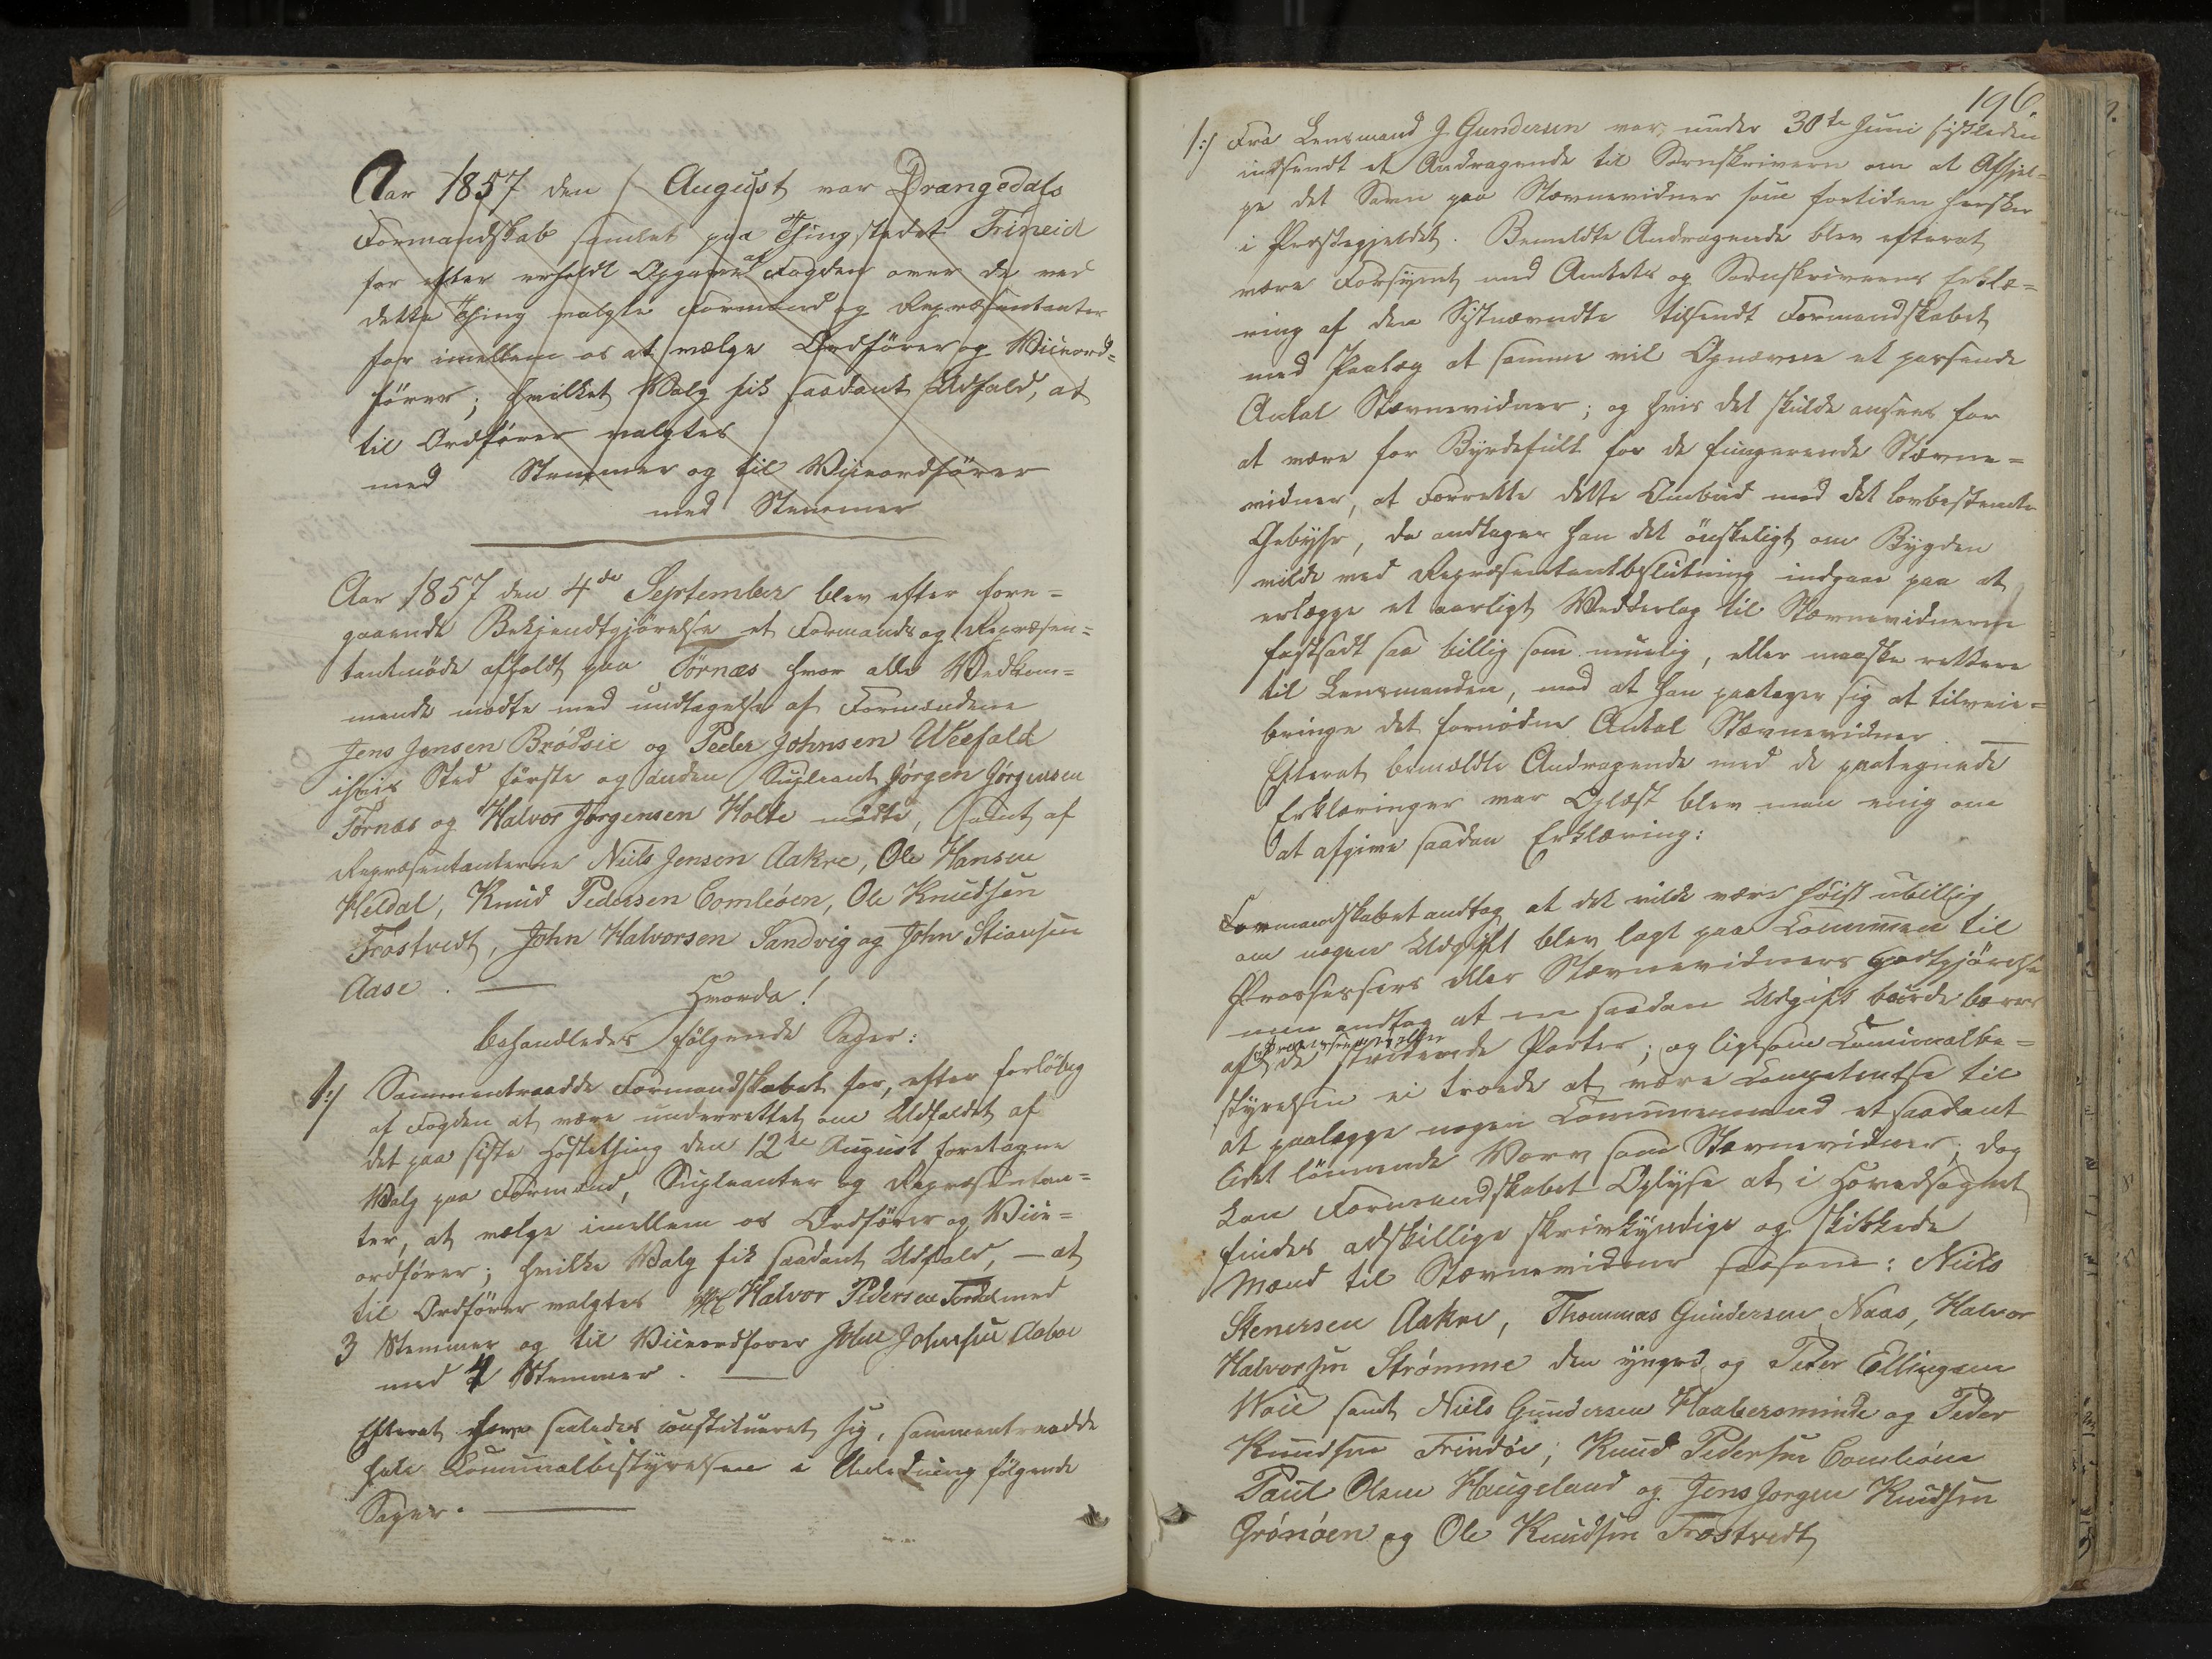 Aar 1857 den August var Drangedals
Formandskab samlet paa Thingstedet Frineid
for efter erholdt Opgave af Fogden over de ved
dette Thing valgte Formænd og Repræsentanter
for imellem os at vælge Ordfører og Viiceord=
fører; hvilket Valg fik saadant Udfald, at
til Ordfører valgtes
med Stemmer og til Viiceordfører
med Stemmer
Aar 1857 den 4de September blev efter fore=
gaaende Bekjendtgjørelse et Formands og Repræsen=
tantmøde afholdt paa Tørnæs hvor alle Vedkom=
mende mødte med undtagelse af Formændene
Jens Jensen Brødsie og Peder Johnsen Weefald
ihvis Sted første og anden Supleant Jørgen Jørgensen
Tørnæs og Halvor Jørgensen Holte mødte, samt af
Repræsentanterne Niels Jensen Aakre, Ole Hansen
Heldal, Knud Pedersen Comleöen, Ole Knudsen
Frøstvedt, John Halvorsen Sandvig og John Stiansen
Aase. —
Hvorda!
behandledes følgende Sager:
1:/ Sammentraadde Formandskabet for, efter forløbig
af Fogden at være underrettet om Udfaldet af
det paa siste Høstething den 12te August foretagne
Valg paa Formænd, Supleanter og Repræsentan=
ter, at vælge imellem os Ordfører og Viice=
ordfører; hvilke Valg fik saadant Udfald, — at
til Ordfører valgtes Halvor Pedersen Tordal med
3 Stemmer og til Viiceordfører John Johnsen Aabøe
med 4 Stemmer. —
Efterat have saaledes constitueret sig, sammentraadde
hele Communalbestyrelsen i Anledning følgende
Sager. —
196.
1:/ Fra Lensmand J Gundersen var under 30te Juni sistleden
indsendt et Andragende til Sornskriveren om at Afhjel=
pe det Savn paa Stævnevidner som fortiden hersker
i Præstegjeldet. Bemeldte Andragende blev efterat
være Forsynet med Amtets og Sornskriverens Erklæ=
ring af den Sistnævndte tilsendt Formandskabet
med Paalæg at samme vil Opnævne et passende
Antal Stævnevidner; og hvis det skulde ansees for
at være for Byrdefult for de fungerende Stævne=
vidner, at Forrette dette Ombud med det lovbestemte
Gebyhr, da andtager han det ønskeligt om Bygden
vilde ved Repræsentantbeslutning indgaae paa at
erlægge et aarligt Wedderlag til Stævnevidnerne
fastsadt saa billig som muelig, eller maaske rettere
til Lensmanden, mod at han paatager sig at tilveie=
bringe det fornødne Antal Stævnevidner. —
Efterat bemældte Andragende med de paategnede
Erklæringer var Oplæst blev man enig om
at afgive saadan Erklæring:
Formandskabet andtog at det vilde være høist ubillig
om nogen Udgift blev lagt paa Communen til
Prossessers eller Stævnevidners godtgjørelse
men andtog at en saadan Udgift burde bæres
af de stridende Parter; og ligesom Communalbe=
styrelsen ei troede at være Competentse til
at paalægge nogen Communemand et saadant
lidet lønnende Værv som Stævnevidner, dog
kan Formandskabet Oplyse at i Hovedsognet
findes adskillige skrivkyndige og skikkede
Mænd til Stævnevidner saasom: Niels
Stenersen Aakre, Thommas Gundersen Naas, Halvor
Halvorsen Strømme den yngre og Peder Ellingsen
Woie samt Niels Gundersen Haabersminde og Peder
Knudsen Frindöe; Knud Pedersen Comleöen
Paul Olsen Haugeland og Jens Jørgen Knudsen
Grönöen og Ole Knudsen Frøstvedt